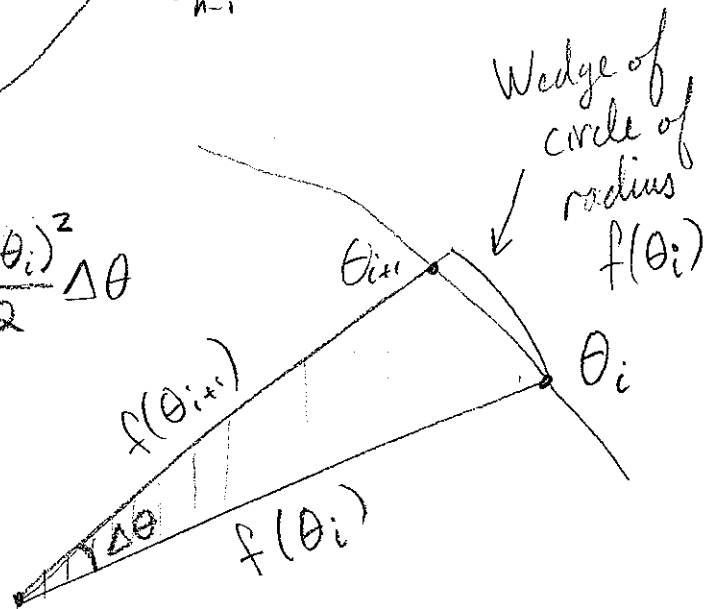 n-1
Wedge of
circle of
radius
f(θᵢ)
θᵢ)²
2
Δθ
θᵢ₊₁
θᵢ
f(θᵢ₊₁)
Δθ
f(θᵢ)